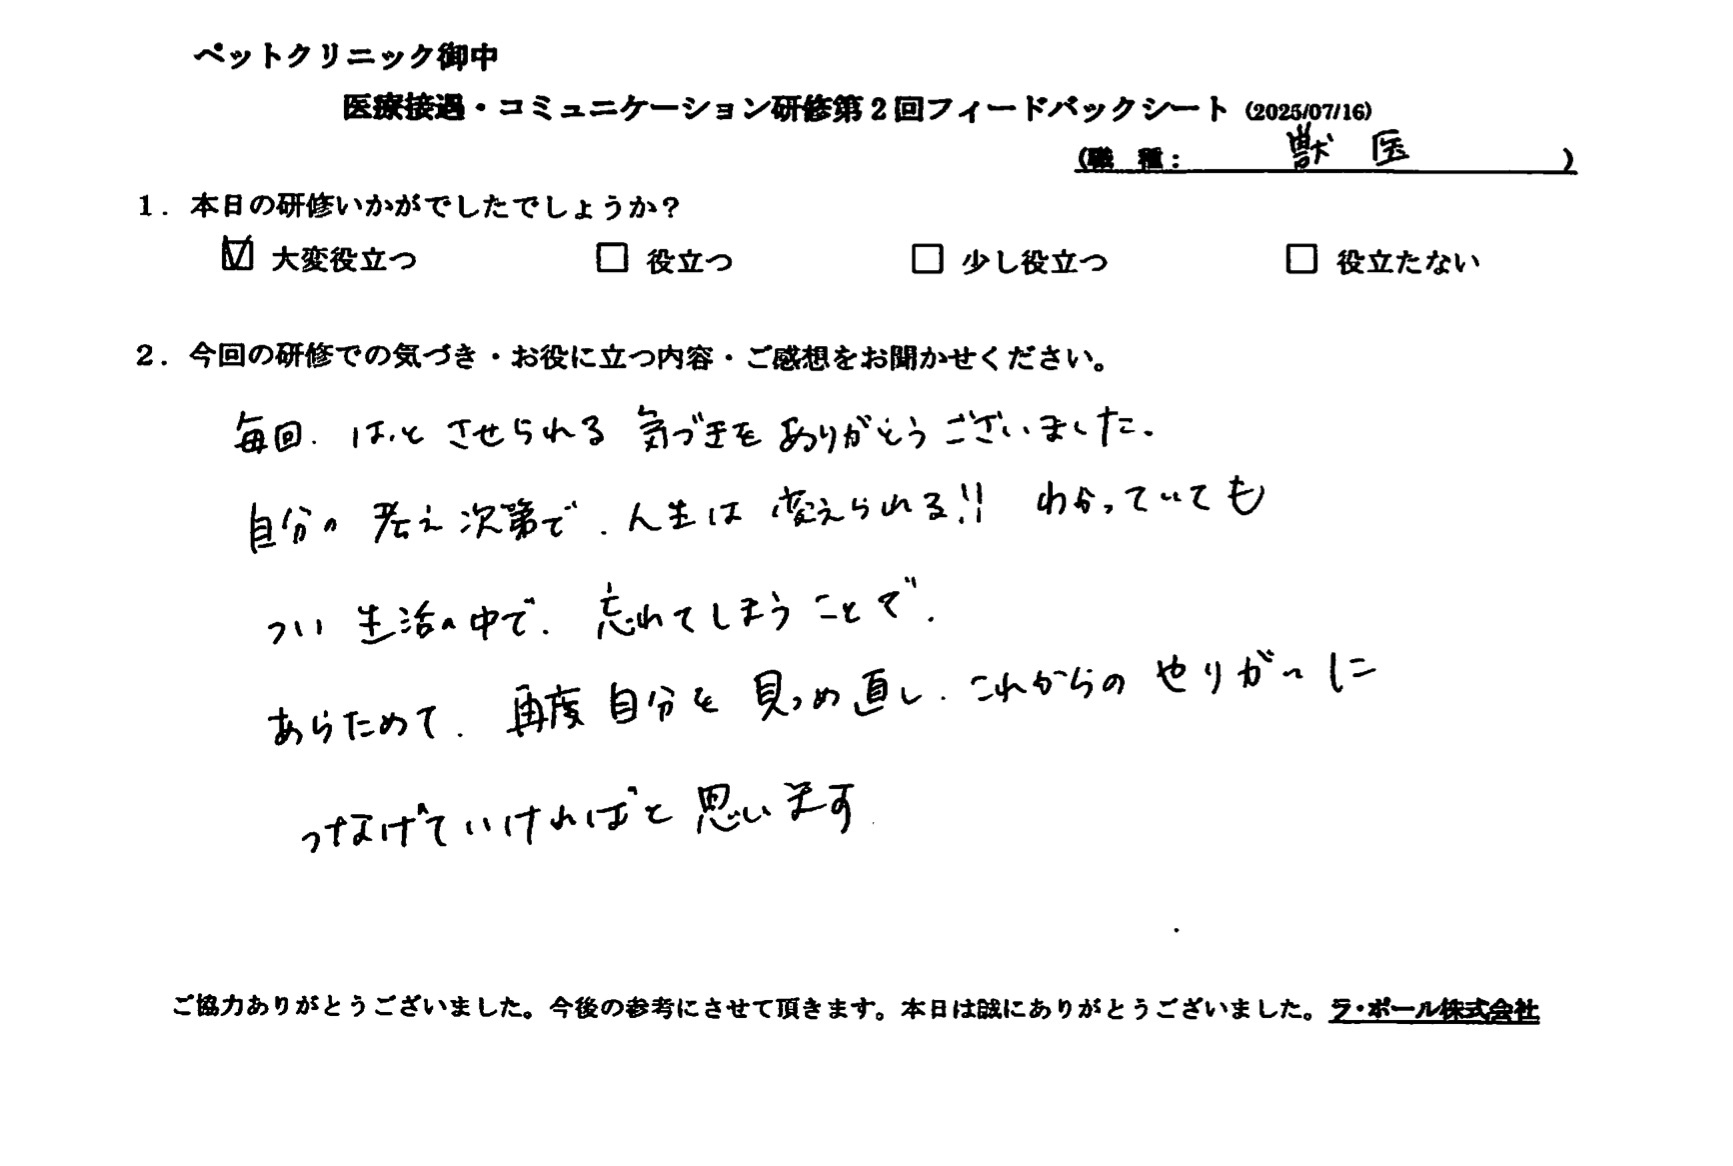 ペットクリニック御中
医療接遇・コミュニケーション研修第2回フィードバックシート (2025/07/16)
(職 種: 獣医 )
1. 本日の研修いかがでしたでしょうか?
☑ 大変役立つ □ 役立つ □ 少し役立つ □ 役立たない
2. 今回の研修での気づき・お役に立つ内容・ご感想をお聞かせください。
毎回、はっとさせられる 気づきを ありがとうございました。
自分の 考え次第で、人生は 変えられる!! わかっていても
つい 生活の中で、忘れてしまうことで、
あらためて、再度自分を 見つめ直し、これからの やりがいに
つなげていければと思います
ご協力ありがとうございました。今後の参考にさせて頂きます。本日は誠にありがとうございました。ラ・ポール株式会社